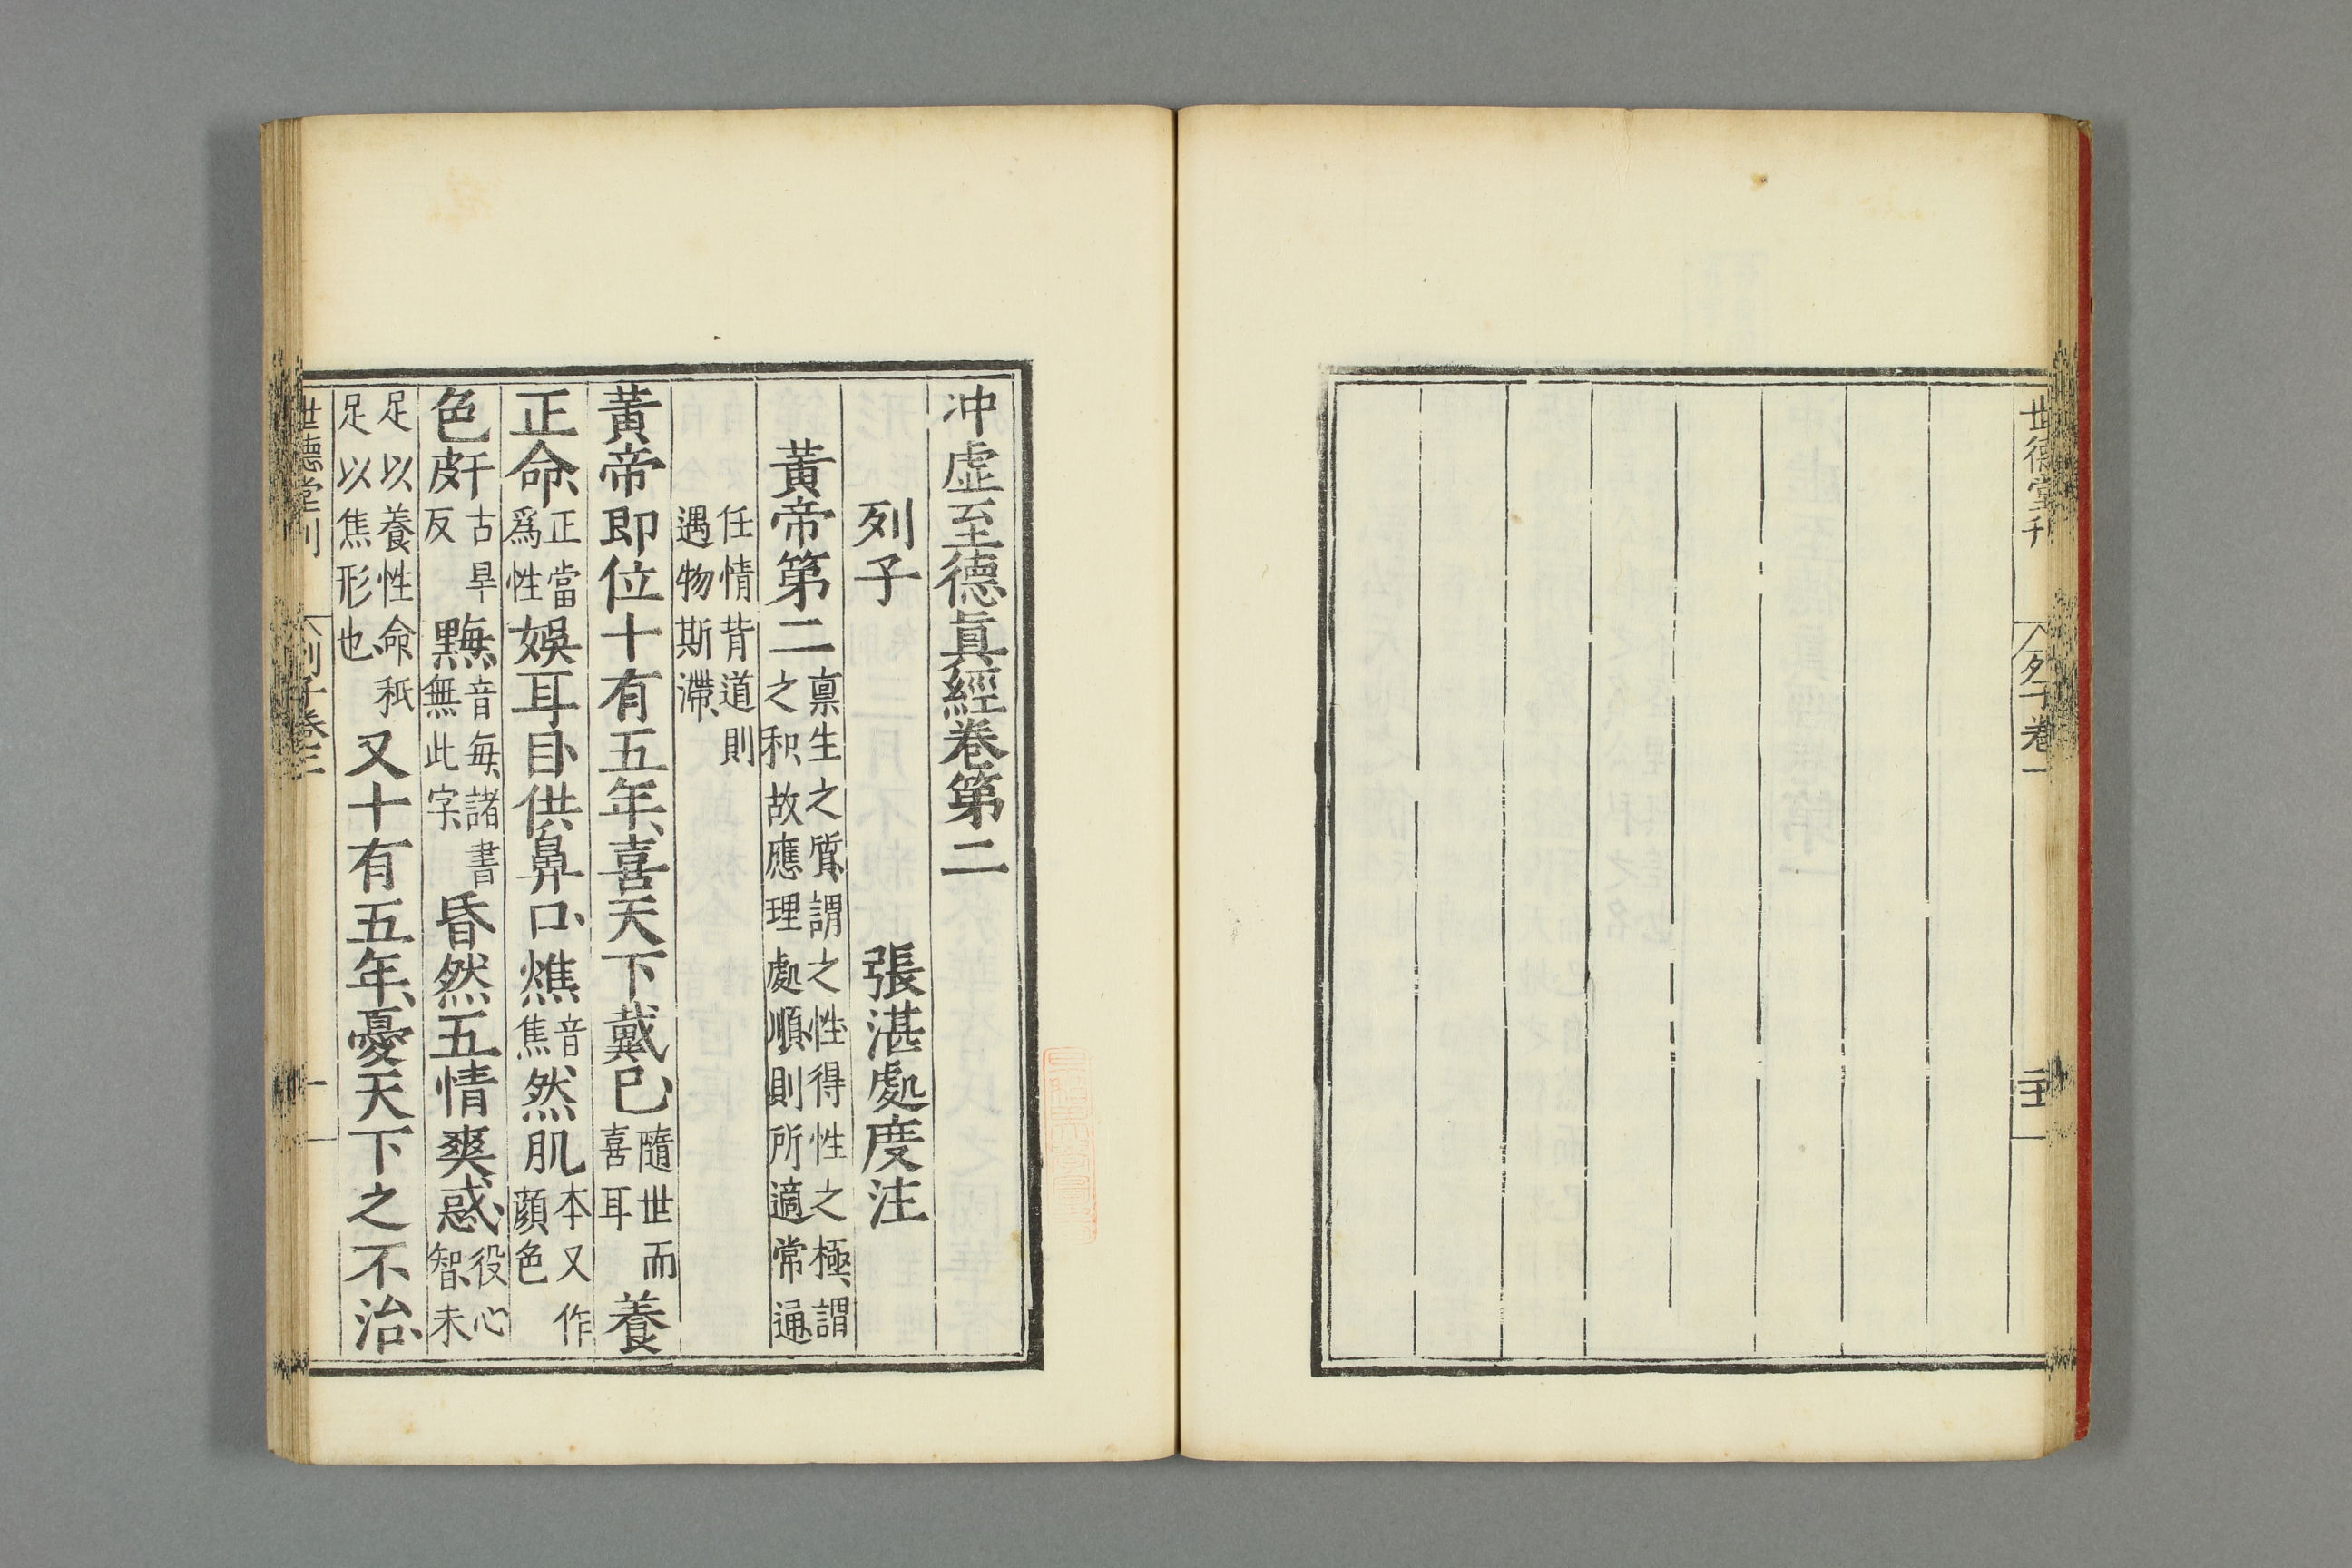 世德堂刊
列子卷一
冲虛至德眞經卷第二
列子 張湛處度注
黃帝第二 禀生之質謂之性得性之極謂之和故應理處順則所適常通
任情背道則遇物斯滯
黃帝即位十有五年喜天下戴己 隨世而喜耳 養
正命 正當爲性 娛耳目供鼻口燋 音焦 然肌 本又作顏色
色皯 古旱反 黣 音每諸書無此字 昏然五情爽惑 役心智未
足以養性命秖足以焦形也 又十有五年憂天下之不治
世德堂刊
列子卷二
一